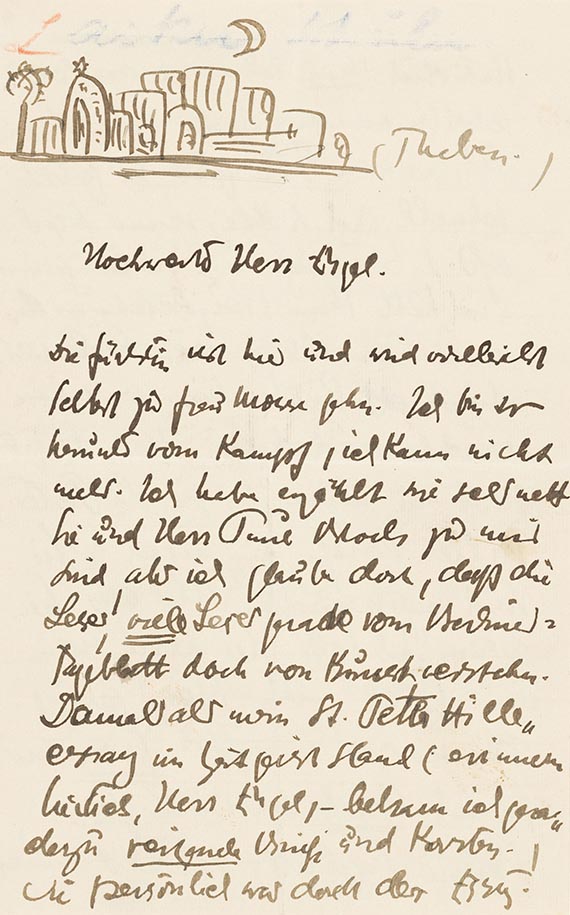 (Theben.)
Hochwerter Herr Engel.
Die Fürstin ist hie und wird vielleicht
selbst zu Frau Mosse gehn. Ich bin so
herunter vom Kampf, ich kann nicht
mehr. Ich habe erzählt wie sehr nett
Sie und Herr Paul Block zu mir
sind, aber ich glaube doch, daß die
Leser, viele Leser grade vom Berliner=
Tageblatt doch von Kunst verstehn.
Damals als mein St. Peter Hille„
essay im Zeitgeist stand (erinnern
Herr Engel, – bekam ich gera„
dezu reizende Briefe und Karten.)
Wie persönlich war doch der Essay.